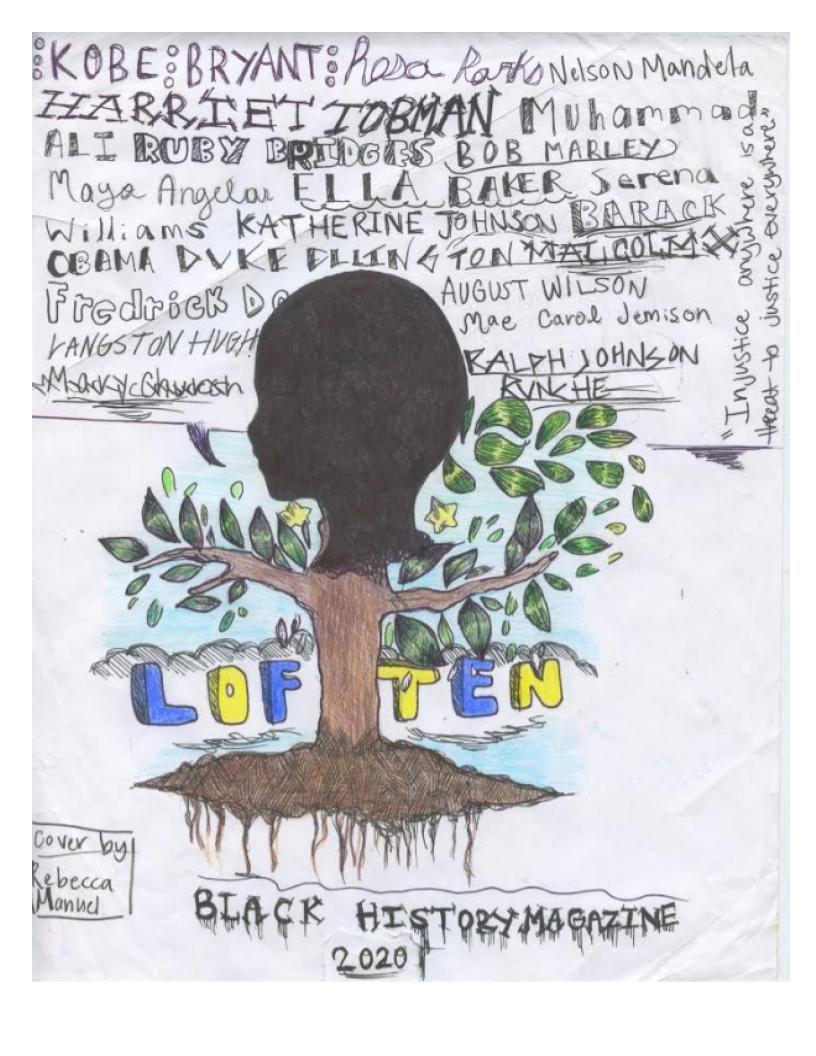 KOBE BRYANT Rosa Parks Nelson Mandela
HARRIET TOBMAN Muhammad
ALI RUBY BRIDGES BOB MARLEY
Maya Angelou ELLA BAKER Serena
Williams KATHERINE JOHNSON BARACK
OBAMA DUKE ELLINGTON MALCOLM X
Fredrick Do
AUGUST WILSON
Mae Carol Jemison
LANGSTON HUGH
RALPH JOHNSON
BUNCHE
"Injustice anywhere is a
threat to justice everywhere"
LOFTEN
Cover by
Rebecca
Manuel
BLACK HISTORY MAGAZINE
2020